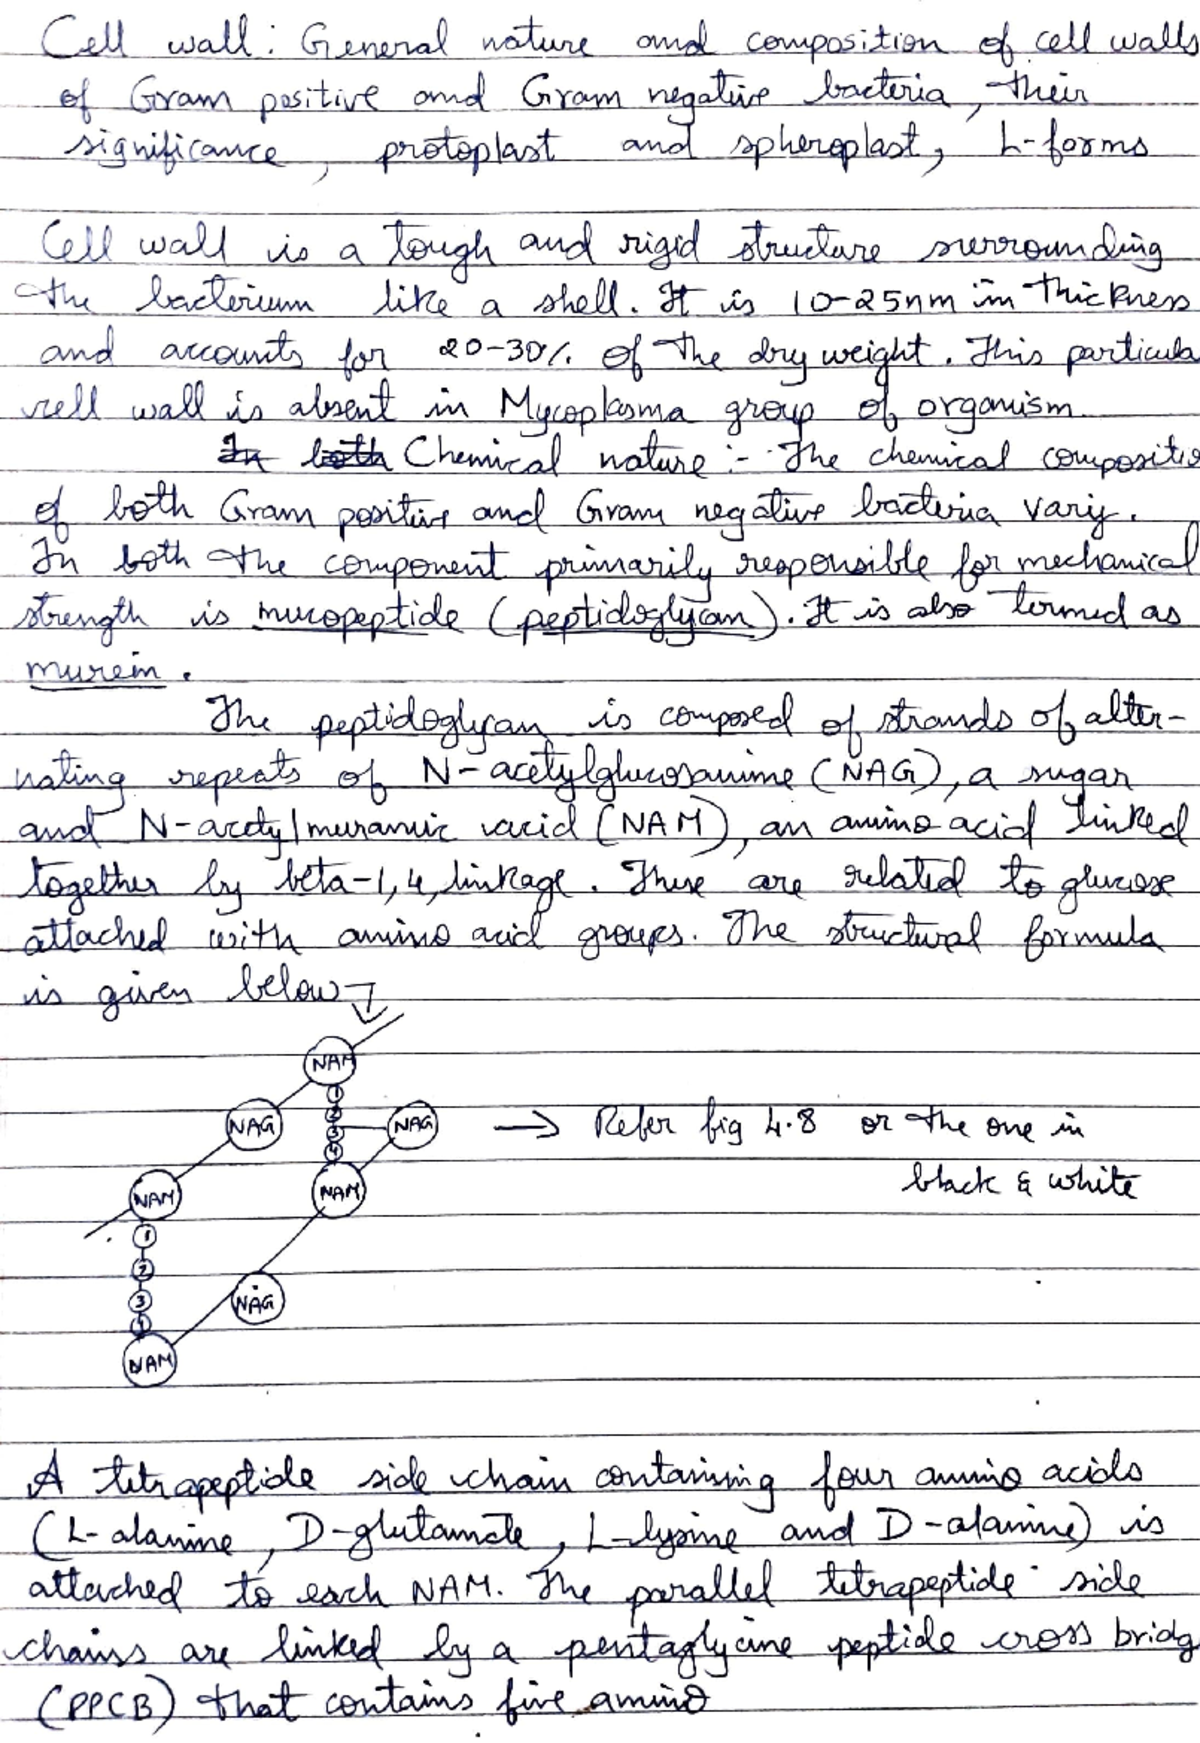 Cell wall: General nature and composition of cell walls
of Gram positive and Gram negative bacteria, their
significance, protoplast and spheroplast, L-forms
Cell wall is a tough and rigid structure surrounding
the bacterium like a shell. It is 10-25nm in thickness
and accounts for 20-30% of the dry weight. This particula
cell wall is absent in Mycoplasma group of organism.
In both Chemical nature :- The chemical compositio
of both Gram positive and Gram negative bacteria vary.
In both the component primarily responsible for mechanical
strength is mucopeptide (peptidoglycan). It is also termed as
murein.
The peptidoglycan is composed of strands of alter-
nating repeats of N-acetylglucosamine (NAG), a sugar
and N-acetylmuramic acid (NAM), an amino acid linked
together by beta-1,4, linkage. These are related to glucose
attached with amino acid groups. The structural formula
is given below
NAM
1
NAG 2 NAG → Refer fig 4.8 or the one in
3
4
NAM NAM black & white
1
2
3 NAG
4
NAM
A tetrapeptide side chain containing four amino acids
(L-alanine, D-glutamate, L-lysine and D-alanine) is
attached to each NAM. The parallel tetrapeptide side
chains are linked by a pentaglycine peptide cross bridg
(PPCB) that contains five amino